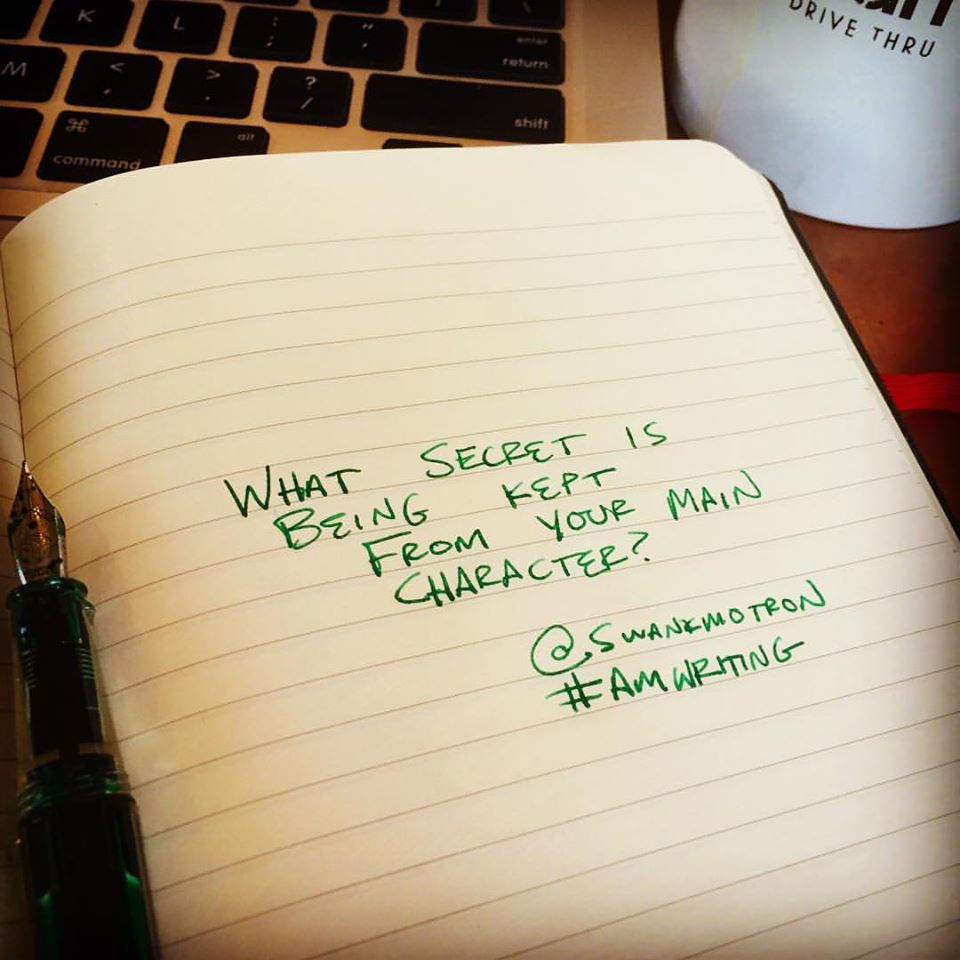 K
L
:
;
"
'
enter
return
M
<
,
>
.
?
/
shift
⌘
command
alt
DRIVE THRU
WHAT SECRET IS
BEING KEPT
FROM YOUR MAIN
CHARACTER?
@SWANKMOTRON
#AMWRITING